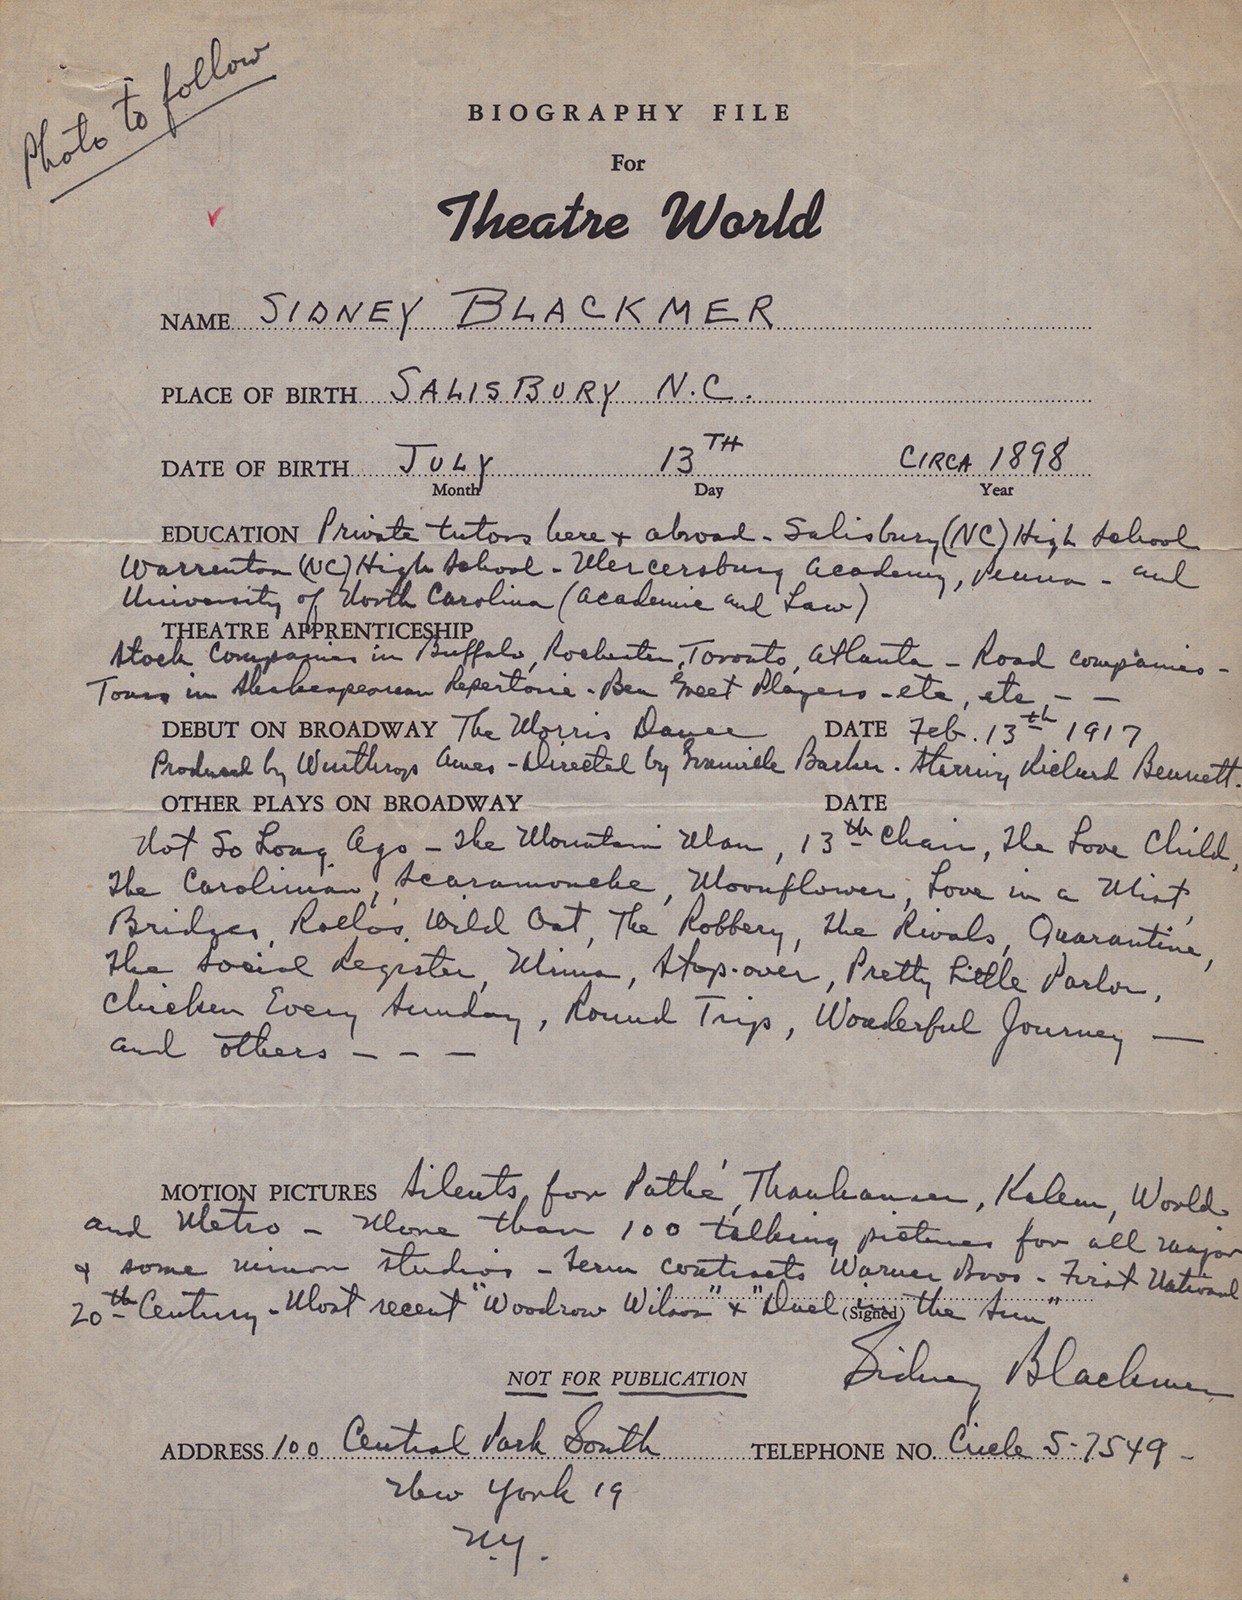 Photo to follow
BIOGRAPHY FILE
For
Theatre World
NAME SIDNEY BLACKMER
PLACE OF BIRTH SALISBURY N.C.
DATE OF BIRTH JULY 13TH CIRCA 1898
Month Day Year
EDUCATION Private tutors here & abroad - Salisbury (NC) High School
Warrenton (NC) High School - Mercersburg Academy, Penna - and
University of North Carolina (Academic and Law)
THEATRE APPRENTICESHIP
Stock Companies in Buffalo, Rochester, Toronto, Atlanta - Road companies -
Tours in Shakespearean Repertoire - Ben Greet Players - etc, etc - -
DEBUT ON BROADWAY The Morris Dance DATE Feb. 13th 1917
Produced by Winthrop Ames - Directed by Granville Barker - Starring Richard Bennett.
OTHER PLAYS ON BROADWAY DATE
Not So Long Ago - The Mountain Man, 13th Chair, The Love Child,
The Carolinian, Scaramouche, Moonflower, Love in a Mist,
Bridges, Rollo's Wild Oat, The Robbery, The Rivals, Quarantine,
The Social Register, Mima, Stop-over, Pretty Little Parlor,
Chicken Every Sunday, Round Trip, Wonderful Journey —
and others - - -
MOTION PICTURES Silents for Pathé, Thanhauser, Kalem, World
and Metro - More than 100 talking pictures for all major
& some minor studios - Term contracts Warner Bros - First National
20th Century - Most recent "Woodrow Wilson" & "Duel (Signed) the Sun"
Sidney Blackmer
NOT FOR PUBLICATION
ADDRESS 100 Central Park South TELEPHONE NO. Circle 5-7549 -
New York 19
N.Y.